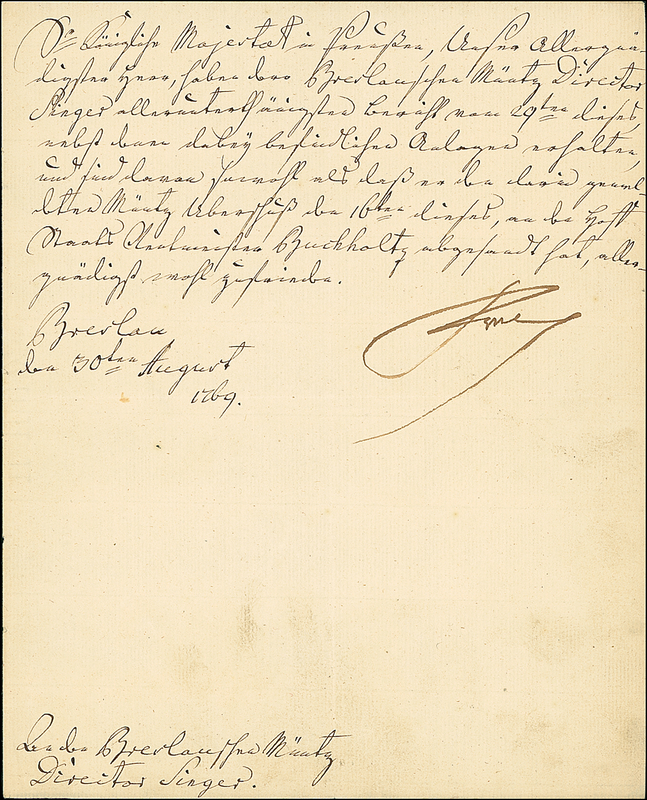 Sr Königliche Majestaet in Preußen, Unser Allergnä-
digster Herr, haben dero Breslauschen Müntz Director
Singer allerunterthänigsten Bericht vom 29ten dieses,
nebst denen dabey befindlichen Anlagen erhalten,
und sind davon sowohl als daß er den darin gemel-
deten Müntz Uberschuß den 16ten dieses, an den Hoff
Staats Rentmeister Buchholtz abgesandt hat, aller-
gnädigst wohl zufrieden.
Breslau
den 30ten August
1769.
An den Breslauschen Müntz
Director Singer.